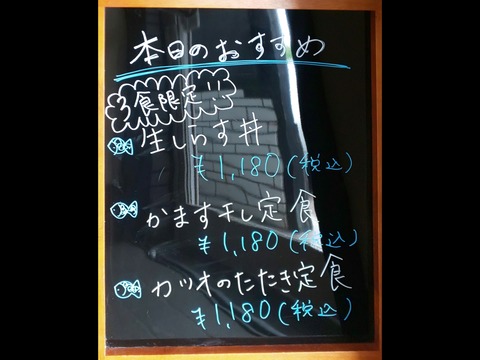 本日のおすすめ
3食限定!!
生しらす丼
¥1,180(税込)
かます干し定食
¥1,180(税込)
カツオのたたき定食
¥1,180(税込)